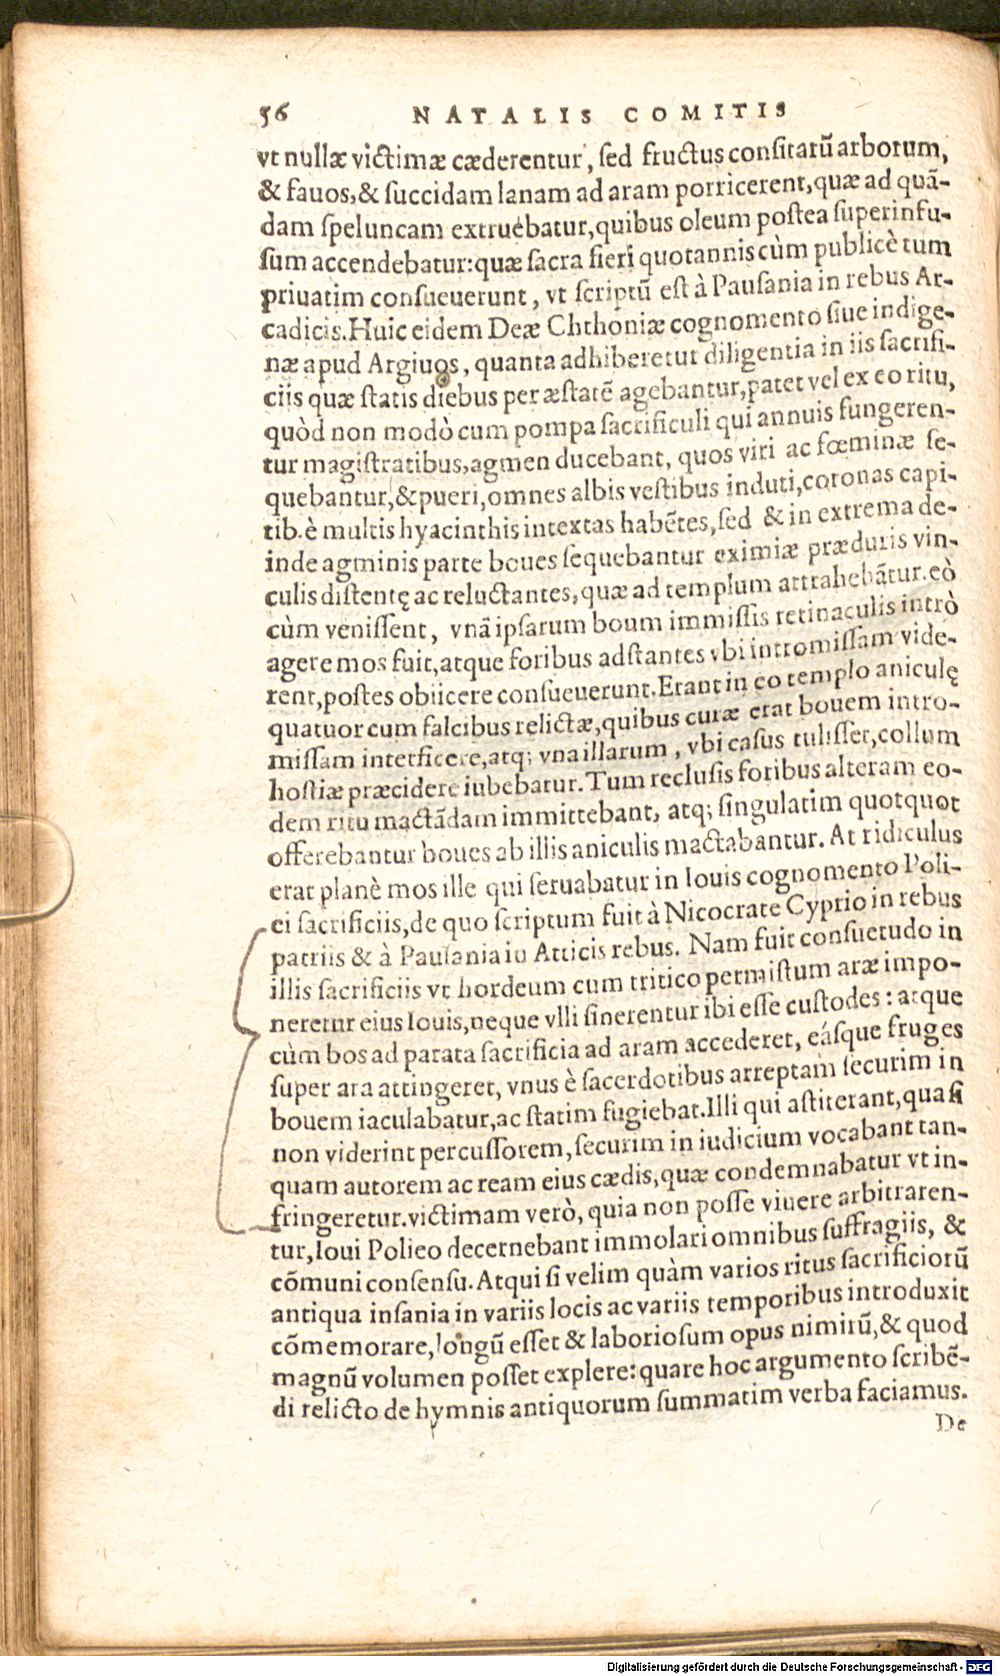 56 NATALIS COMITIS
vt nullæ victimæ cæderentur, ſed fructus conſitarũ arborum,
& fauos, & ſuccidam lanam ad aram porricerent, quæ ad quã-
dam ſpeluncam extruebatur, quibus oleum poſtea ſuperinfu-
ſum accendebatur: quæ ſacra fieri quotannis cùm publicè tum
priuatim conſueuerunt, vt ſcriptũ eſt à Pauſania in rebus Ar-
cadicis. Huic eidem Deæ Chthoniæ cognomento ſiue indige-
næ apud Argiuos, quanta adhiberetur diligentia in iis ſacrifi-
ciis quæ ſtatis diebus per æſtatẽ agebantur, patet vel ex eo ritu,
quòd non modò cum pompa ſacrificuli qui annuis fungeren-
tur magiſtratibus, agmen ducebant, quos viri ac fœminæ ſe-
quebantur, & pueri, omnes albis veſtibus induti, coronas capi-
tib. è multis hyacinthis intextas habẽtes, ſed & in extrema de-
inde agminis parte boues ſequebantur eximiæ præduris vin-
culis diſtentę ac reluctantes, quæ ad templum attrahebãtur. eò
cùm veniſſent, vnã ipſarum boum immiſſis retinaculis intrò
agere mos fuit, atque foribus adſtantes vbi intromiſſam vide-
rent, poſtes obiicere conſueuerunt. Erant in eo templo aniculę
quatuor cum falcibus relictæ, quibus curæ erat bouem intro-
miſſam interficere, atq; vna illarum, vbi caſus tuliſſet, collum
hoſtiæ præcidere iubebatur. Tum recluſis foribus alteram eo-
dem ritu mactãdam immittebant, atq; ſingulatim quotquot
offerebantur boues ab illis aniculis mactabantur. At ridiculus
erat planè mos ille qui ſeruabatur in Iouis cognomento Poli-
ei ſacrificiis, de quo ſcriptum fuit à Nicocrate Cyprio in rebus
patriis & à Pauſania in Atticis rebus. Nam fuit conſuetudo in
illis ſacrificiis vt hordeum cum tritico permiſtum aræ impo-
neretur eius Iouis, neque vlli ſinerentur ibi eſſe cuſtodes: atque
cùm bos ad parata ſacrificia ad aram accederet, eáſque fruges
ſuper ara attingeret, vnus è ſacerdotibus arreptam ſecurim in
bouem iaculabatur, ac ſtatim fugiebat. Illi qui aſtiterant, quaſi
non viderint percuſſorem, ſecurim in iudicium vocabant tan-
quam autorem ac ream eius cædis, quæ condemnabatur vt in-
fringeretur. victimam verò, quia non poſſe viuere arbitraren-
tur, Ioui Polieo decernebant immolari omnibus ſuffragiis, &
cõmuni conſenſu. Atqui ſi velim quàm varios ritus ſacrificiorũ
antiqua inſania in variis locis ac variis temporibus introduxit
cõmemorare, longũ eſſet & laborioſum opus nimirũ, & quod
magnũ volumen poſſet explere: quare hoc argumento ſcribẽ-
di relicto de hymnis antiquorum ſummatim verba faciamus.
De
Digitalisierung gefördert durch die Deutsche Forschungsgemeinschaft - DFG